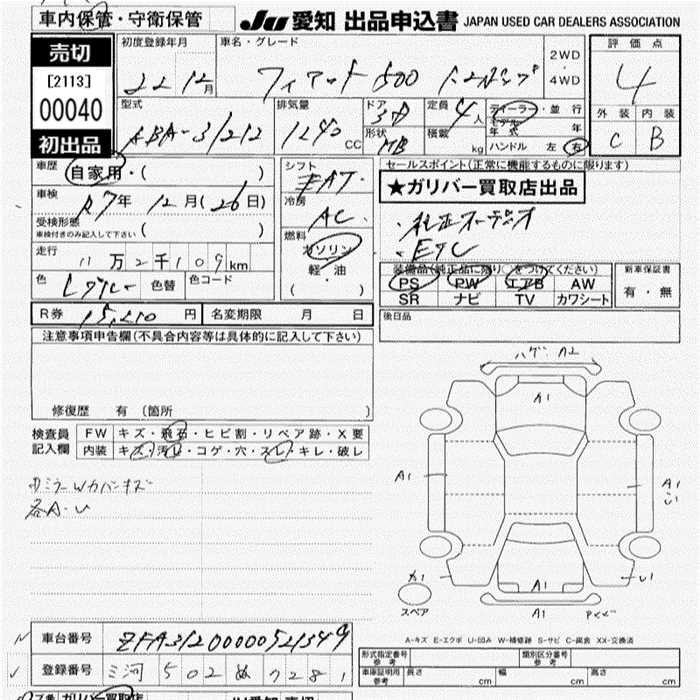 車内保管・守衛保管
JU 愛知 出品申込書 JAPAN USED CAR DEALERS ASSOCIATION
売切
[2113]
00040
初出品
初度登録年月
22 12月
車名・グレード
フィアット500
2WD・4WD
評価点
4
外装 内装
C B
型式
ABA-31212
排気量
1240 CC
ドア 3D
形状 HB
定員 4人
積載 kg
ディーラー・並行
モデル年式 年
ハンドル 左 右
車歴 自家用・( )
車検 R7年 12月(26日)
受検形態
車検付きのみ記入して下さい ( )
走行
11万2千109km
色 色替 色コード
シフト
冷房
AC
燃料
ガソリン
軽・油
( ・ )
セールスポイント(正常に機能するものに限ります)
★ガリバー買取店出品
・純正オーディオ
・ETC
装備品(純正品に限り○をつけてください)
PS PW エアB AW
SR ナビ TV カワシート
新車保証書
有・無
R券 15,210円 名変期限 月 日
後日品
注意事項申告欄(不具合内容等は具体的に記入して下さい)
修復歴 有 (箇所 )
検査員記入欄
FW キズ・飛石・ヒビ割・リペア跡・X要
内装 キズ・汚れ・コゲ・穴・スレ・キレ・破レ
各A・U
ハゲ A2
A1
A1
A1
U1
A1
U1
A1
スペア
A-キズ E-エクボ U-凹み W-補修跡 S-サビ C-腐食 XX-交換済
車台番号 ZFA31200000521349
登録番号 三河 502 ぬ 7281
形式指定番号 参考
類別区分番号 参考
車庫証明用 参考
長さ cm 幅 cm 高さ cm
ガリバー買取店
JU愛知 売切